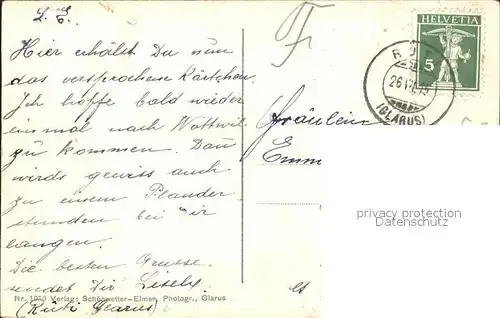 L. E.
Hier erhälst Du nun
das versprochene Kärtchen.
Ich hoffe bald wieder
einmal nach Wattwil
zu kommen. Dann
wirds gewiss auch
zu einem Plauder
stunden bei Dir
langen.
Die besten Grüsse
sendet Dir Lisely
(Rüti Glarus)
Nr. 1050 Verlag: Schönwetter-Elmer, Photogr., Glarus
HELVETIA
5
(GLARUS)
Fräulein
Emm
privacy protection
Datenschutz